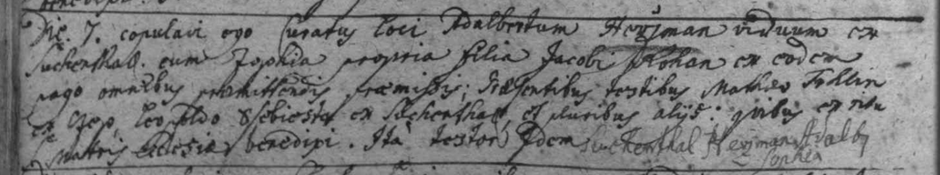 Die 7. copulavi ego Curatus loci Adalbertum Heyman viduum ex
Suchenthal. cum Sophia propria filia Jacobi Rohan ex eodem
pago omnibus praemittendis praemissis; Praesentibus testibus Matheo
ex Leopoldo ex Suchenthal, et pluribus alijs: quibus ex ritu
S: Matris Ecclesiae benedixi. Ità testor Idem Suchenthal Heyman Adalb
Sophia